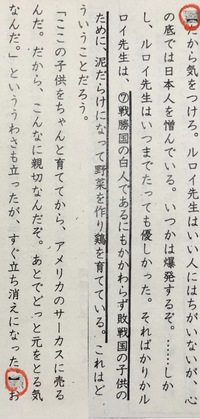 だから気をつけろ。ルロイ先生はいい人にはちがいないが、心
の底では日本人を憎んでいる。いつかは爆発するぞ。……しか
し、ルロイ先生はいつまでたっても優しかった。そればかりかル
ロイ先生は、⑦戦勝国の白人であるにもかかわらず敗戦国の子供の
ために、泥だらけになって野菜を作り鶏を育てている。これはど
ういうことだろう。
「ここの子供をちゃんと育ててから、アメリカのサーカスに売る
んだ。だから、こんなに親切なんだぞ。あとでどっと元をとる気
なんだ。」といううわさも立ったが、すぐ立ち消えになった。お